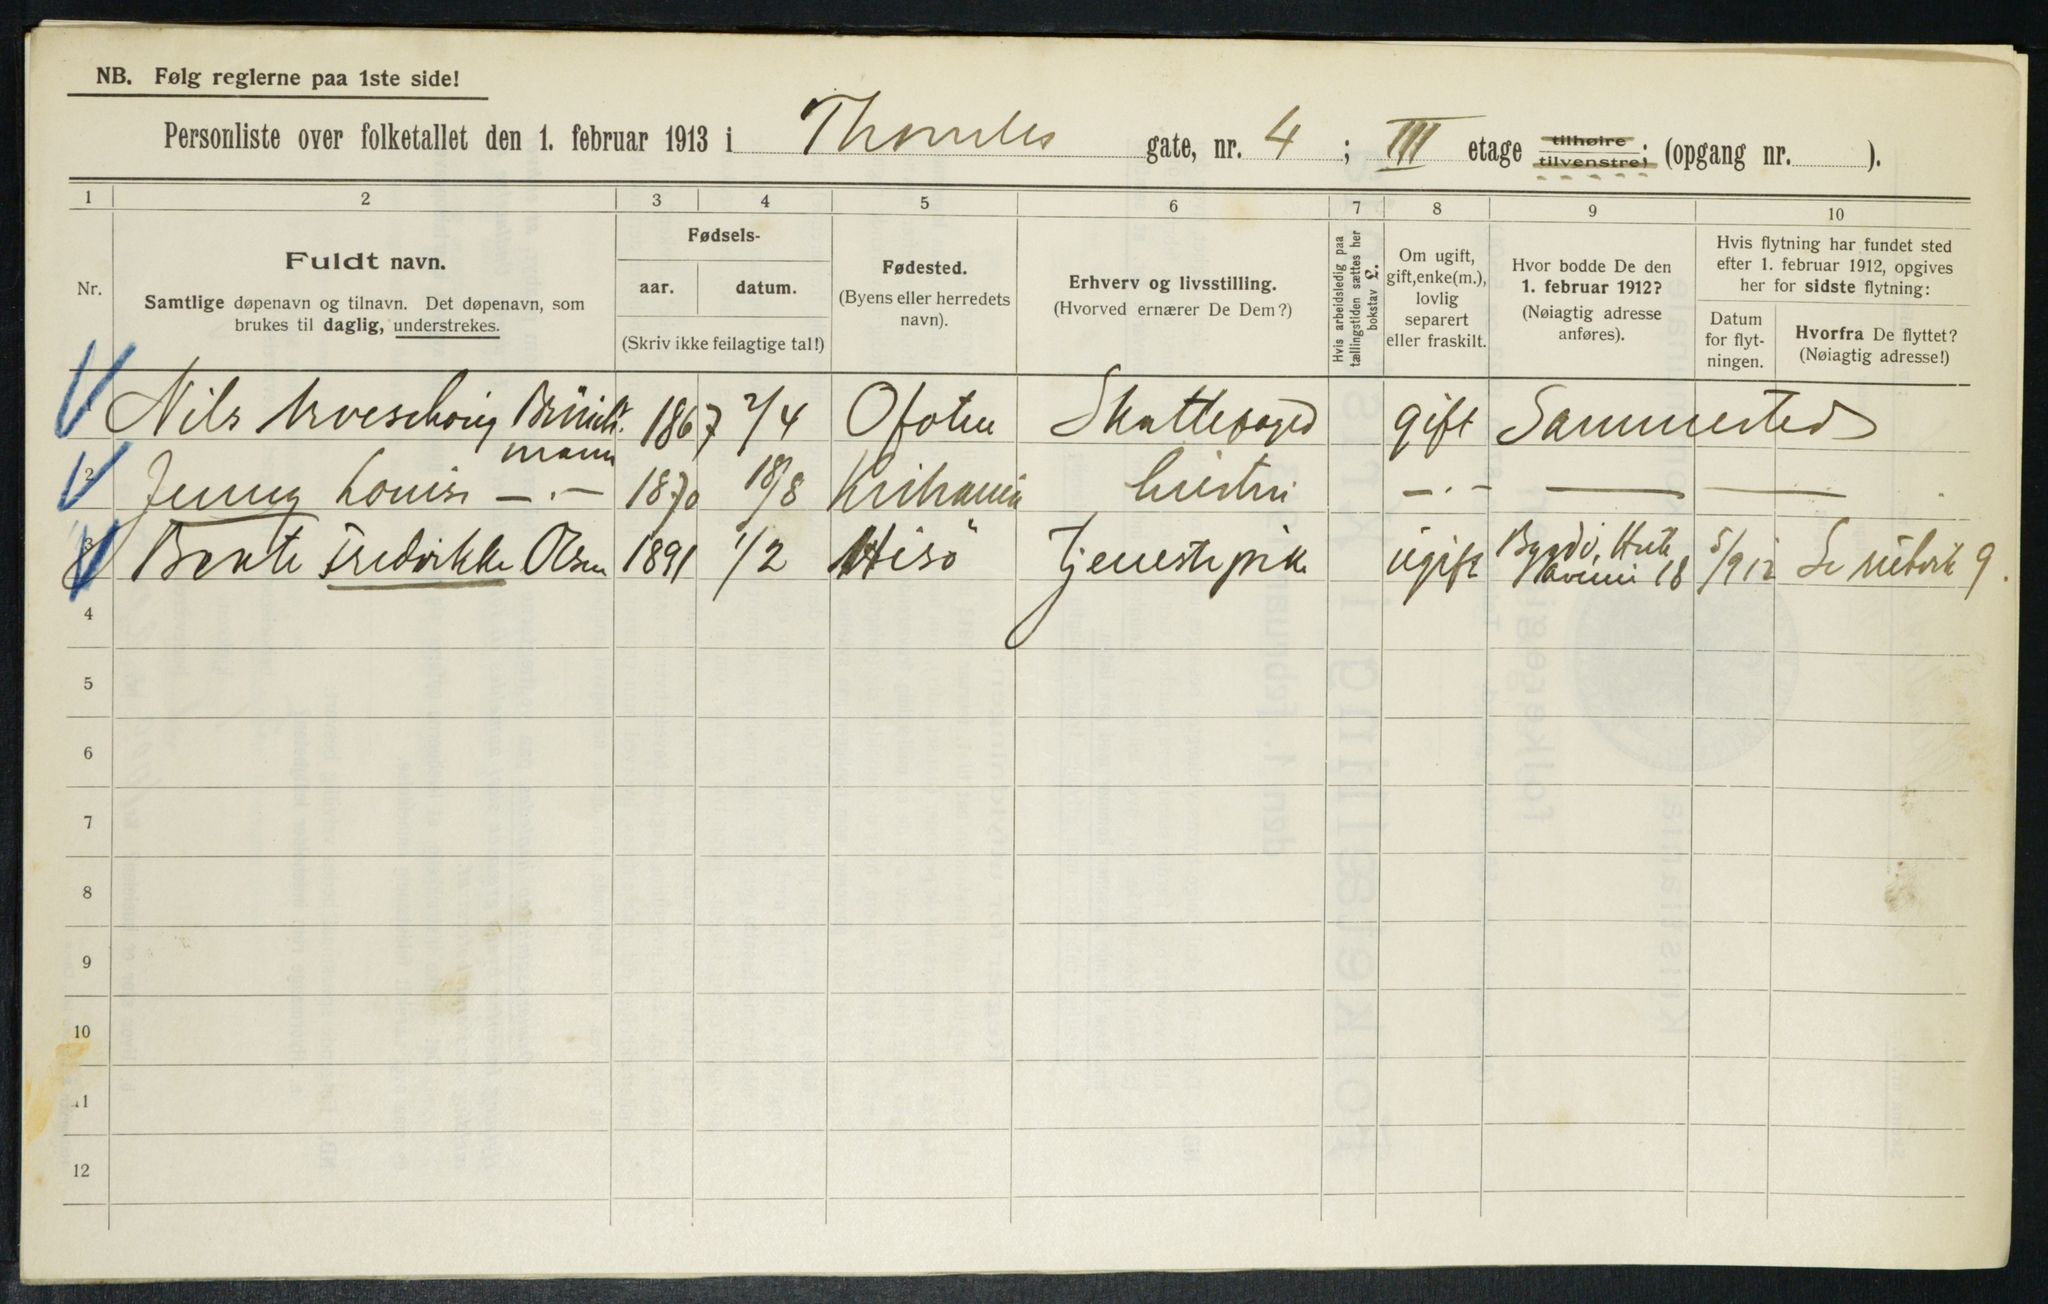 NB. Følg reglerne paa 1ste side!
Personliste over folketallet den 1. februar 1913 i Thomles gate, nr. 4 ; III etage tilhøire tilvenstre; (opgang nr. ).
1 2 3 4 5 6 7 8 9 10
Nr.
Fuldt navn.
Samtlige døpenavn og tilnavn. Det døpenavn, som
brukes til daglig, understrekes.
Fødsels-
aar. datum.
(Skriv ikke feilagtige tal!)
Fødested.
(Byens eller herredets
navn).
Erhverv og livsstilling.
(Hvorved ernærer De Dem?)
Hvis arbeidsledig paa
tællingstiden sættes her
bokstav £.
Om ugift,
gift, enke(m.),
lovlig
separert
eller fraskilt.
Hvor bodde De den
1. februar 1912?
(Nøiagtig adresse
anføres).
Hvis flytning har fundet sted
efter 1. februar 1912, opgives
her for sidste flytning:
Datum
for flyt-
ningen.
Hvorfra De flyttet?
(Nøiagtig adresse!)
Nils 1867 2/4 Ofoten Skattefoged gift Sammesteds
mann
2 Jenny Louise —.— 1870 18/8 Kristiania Hustru —.— — —
3 Bente Fredrikke Olsen 1891 1/2 Hisö Tjenestepike ugift Bygdö, 18 5/9 12 Se rubrik 9.
4
5
6
7
8
9
10
11
12